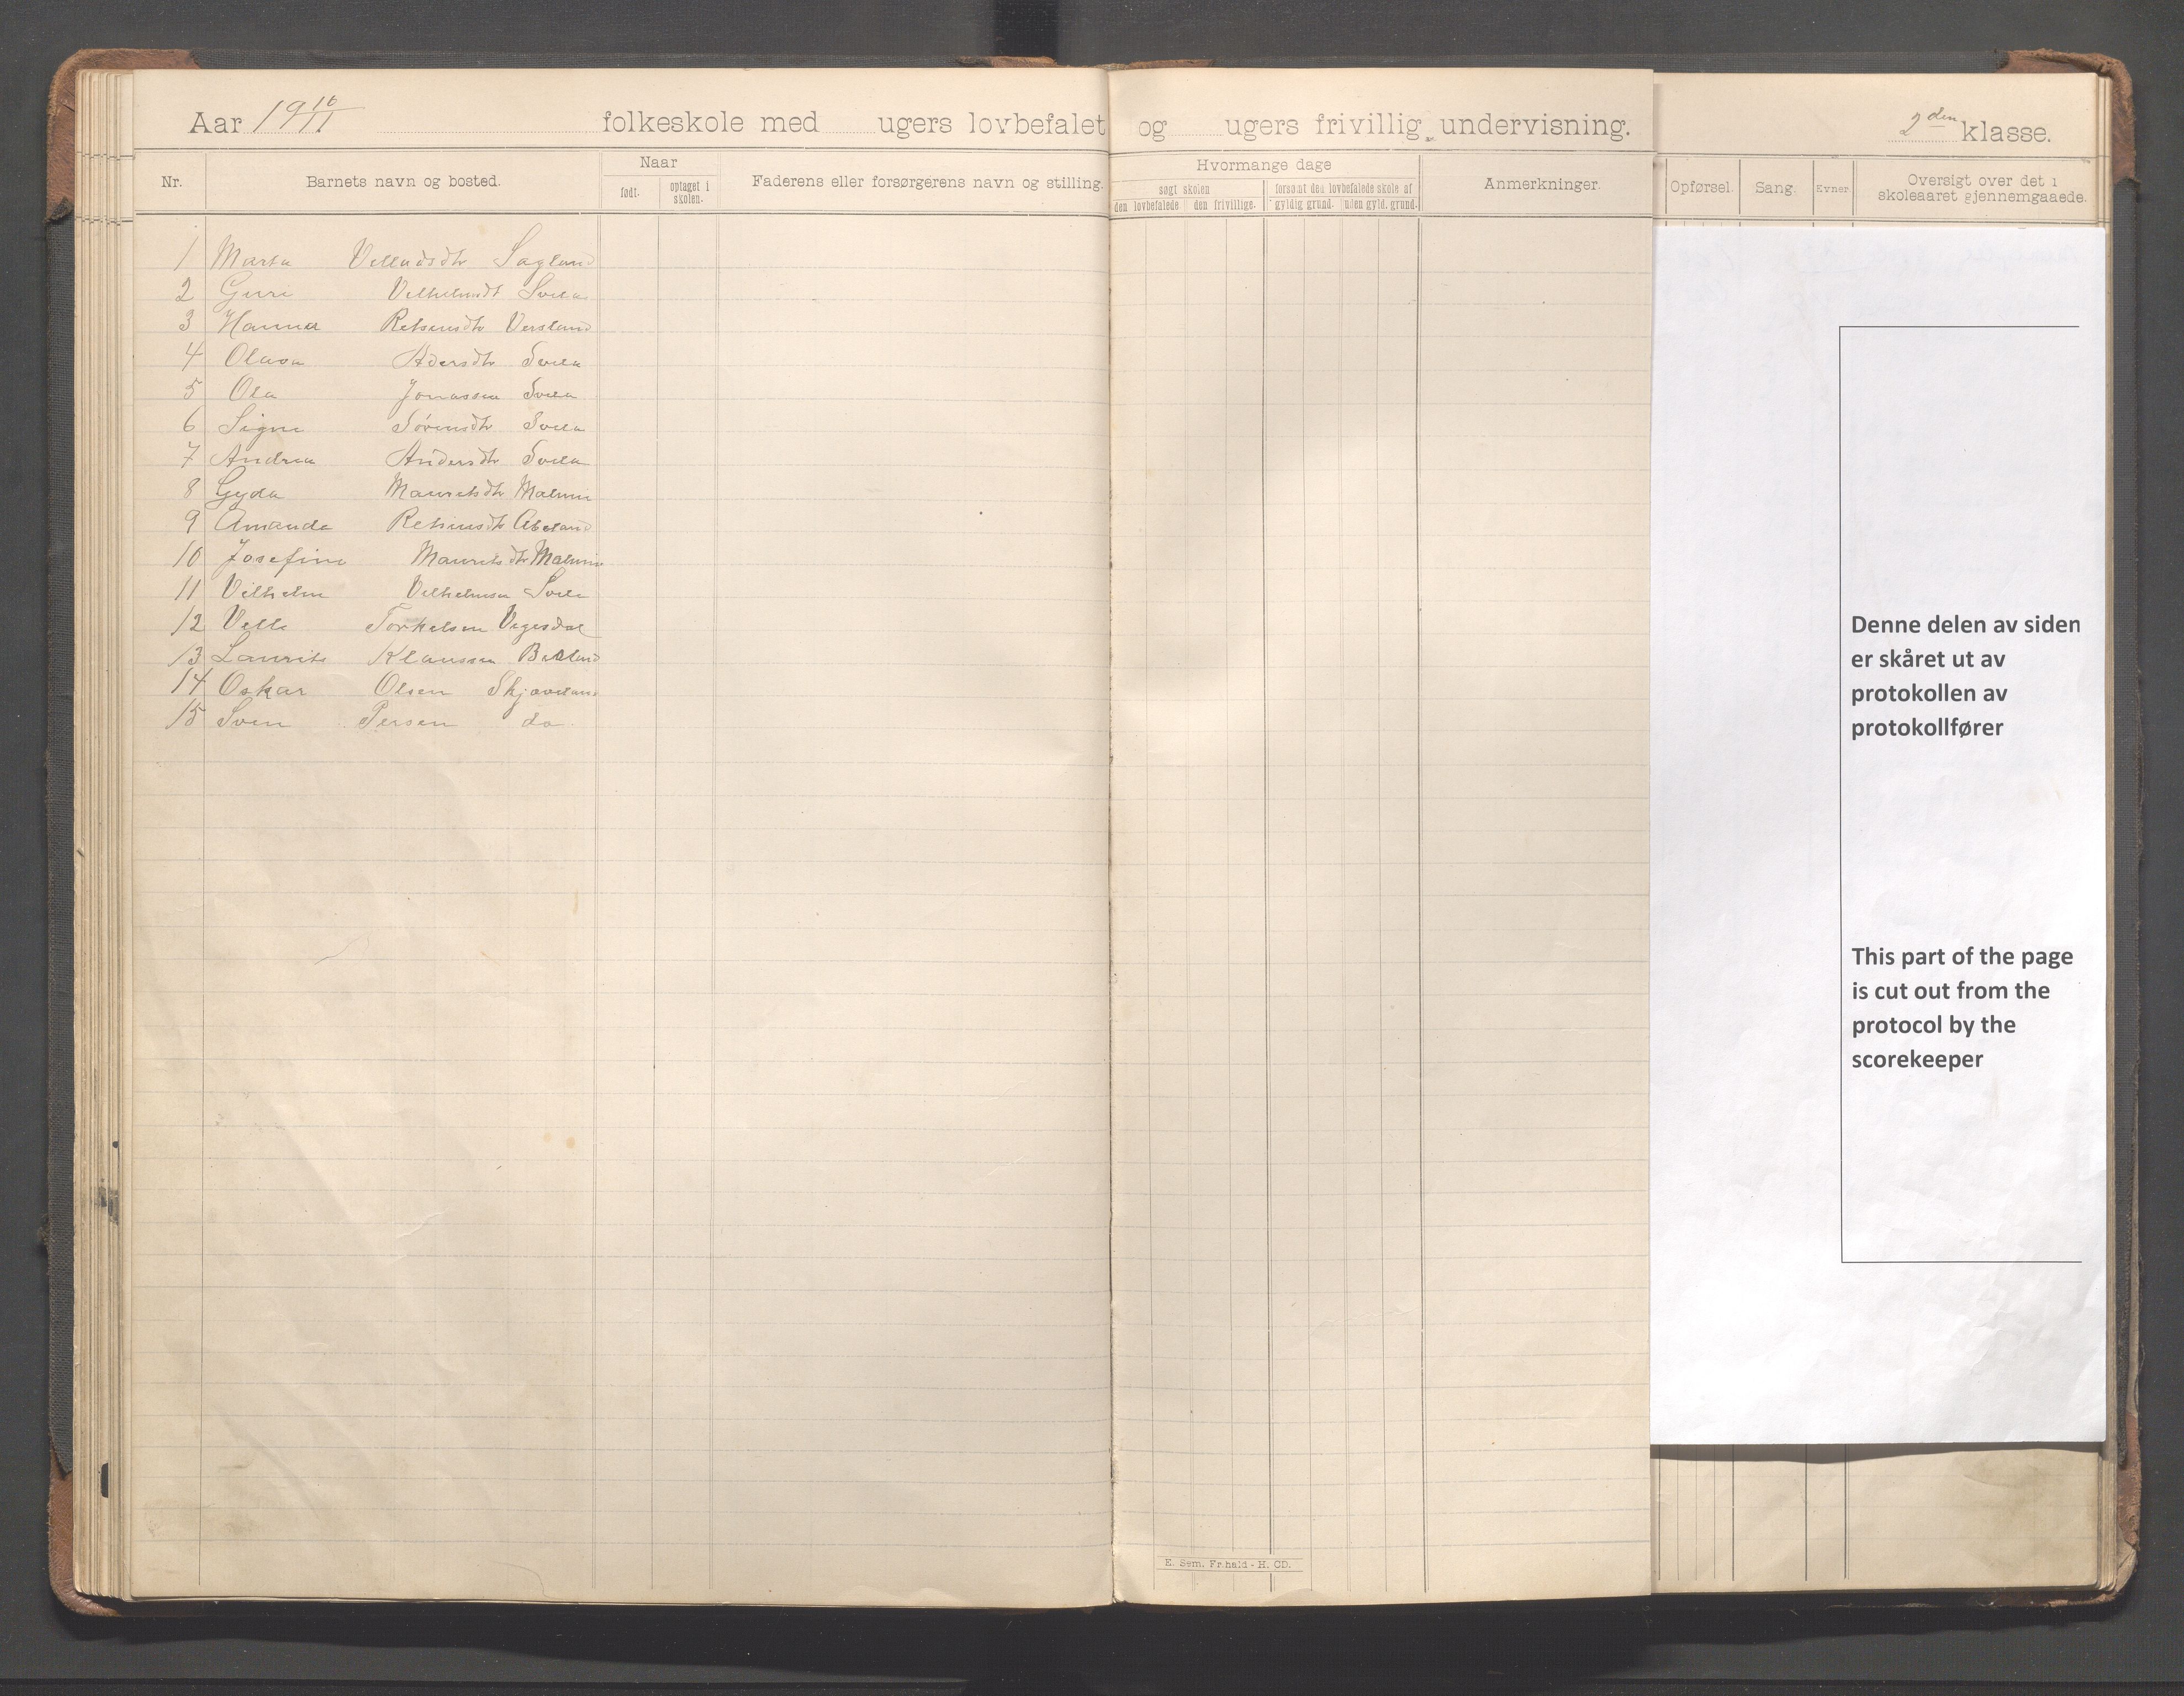 Aar 19 10/11 folkeskole med ugers lovbefalet og ugers frivillig undervisning. 2den klasse.
Nr. Barnets navn og bosted. Naar Faderens eller forsørgerens navn og stilling. Hvormange dage Anmerkninger. Opførsel. Sang. Evner. Oversigt over det i
skoleaaret gjennemgaaede.
født. optaget i
skolen.
søgt skolen forsømt den lovbefalede skole af
den lovbefalede den frivillige. gyldig grund. uden gyld. grund.
1 Marta Velladsdtr Sagland
2 Guri Vilhelmsdt Svela
3 Hanna Retsiusdtr Versland
4 Olava Adersdtr Svela
5 Ola Jonassen Svela
6 Signe Sörensdtr Svela
7 Andrea Andersdtr Svela
8 Gyda Mauritsdtr Malmin
9 Amanda Retsiusdtr Abeland
10 Josefine Mauritsdtr Malmin
11 Vilhelm Vilhelmsen Svela
12 Velle Torkelsen Vegesdal
13 Laurits Klaussen
14 Oskar Olsen Skjæveland
15 Sven Persen do
Denne delen av siden
er skåret ut av
protokollen av
protokollfører
This part of the page
is cut out from the
protocol by the
scorekeeper
E. Sem. Fr.hald - H. CD.